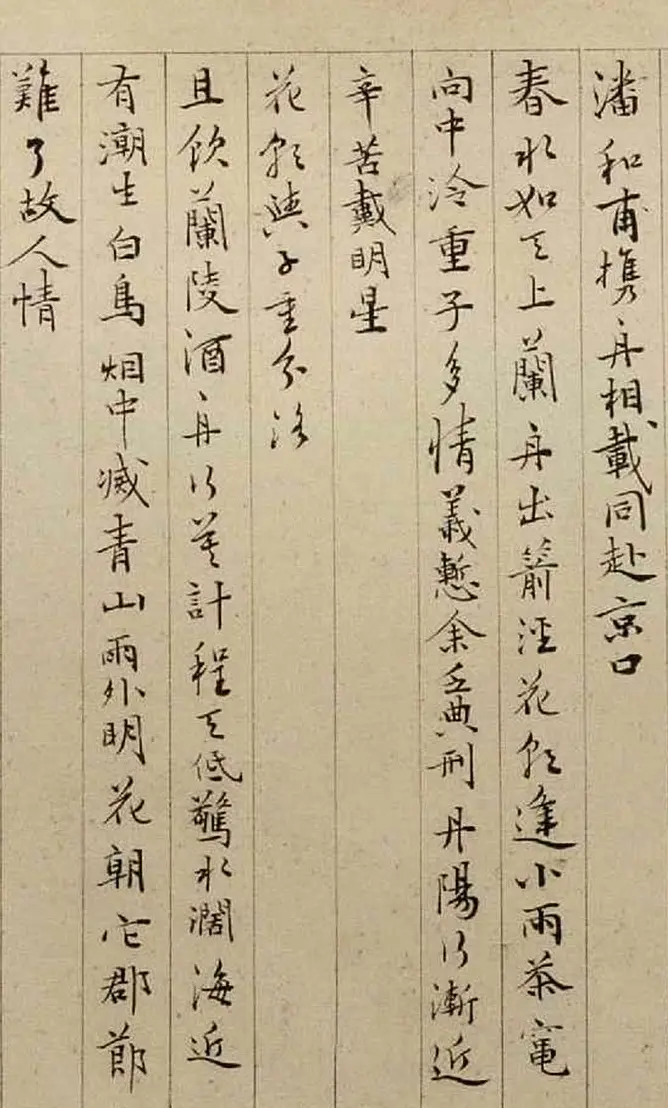 潘和甫携舟相載同赴京口
春水如天上蘭舟出箭涇花朝逢小雨茶竈
向中泠重子多情義慙余乏典刑丹陽行漸近
辛苦戴明星
花朝與子重分
且飲蘭陵酒舟行莫計程天低驚水濶海近
有潮生白鳥烟中滅青山雨外明花朝它郡節
難了故人情